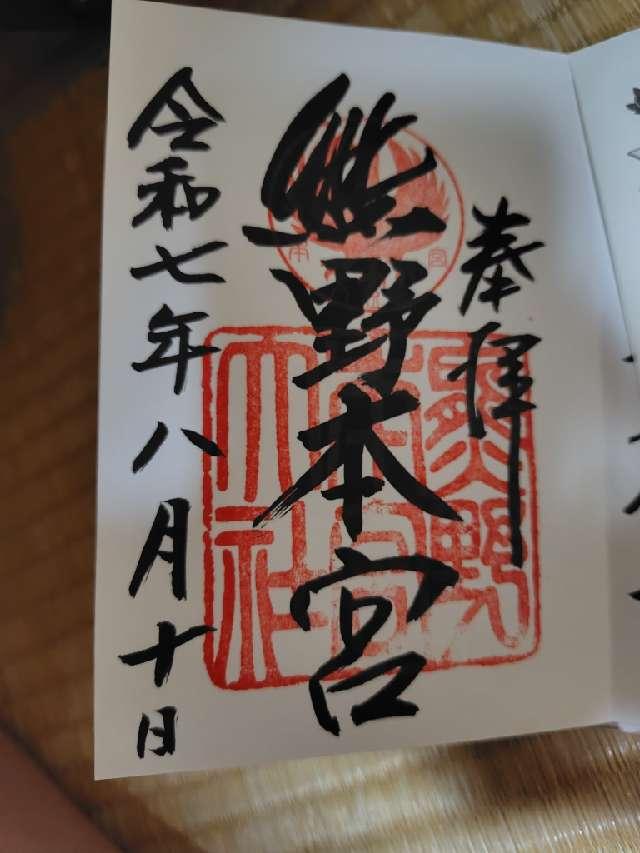 奉拝
熊野本宮
令和七年八月十日
熊野
本宮
大社